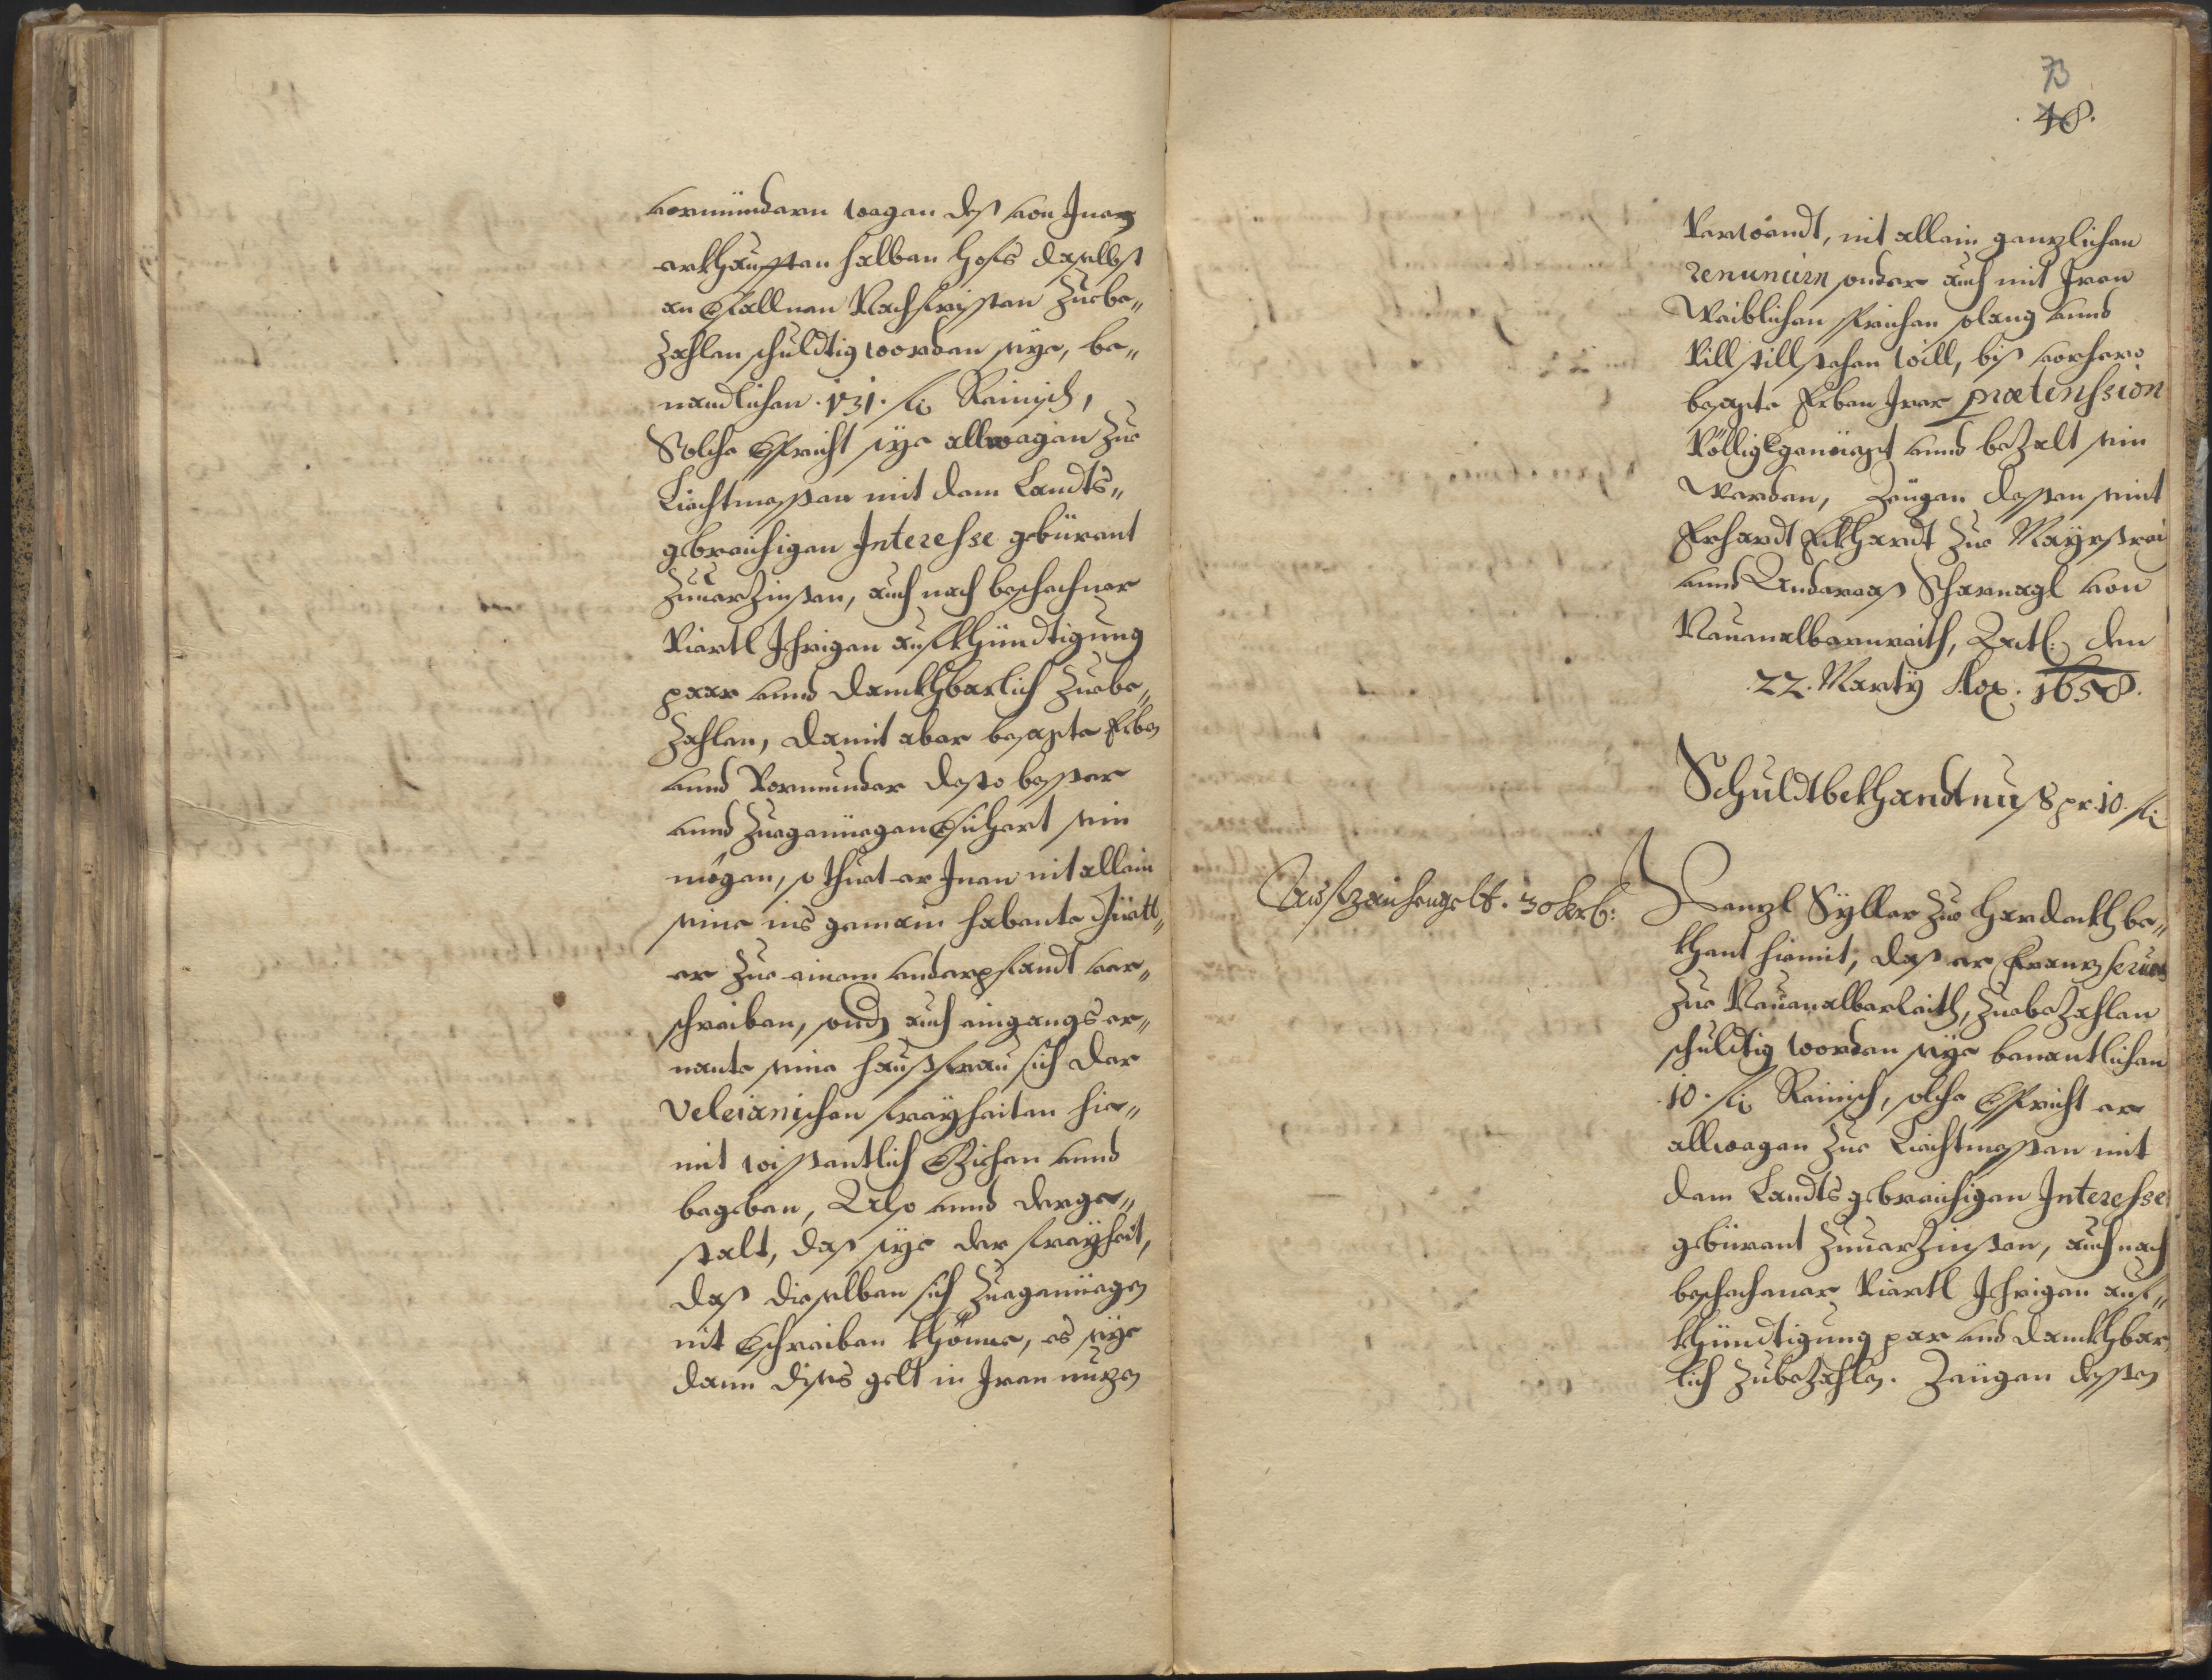 vormündern wegen deß von Jnen
erkhaufften halben Hofs daselbst
an verfallnen Nachfristen Zuebe„
Zahlen schuldtig worden seye, be„
nandlichen .131. fl Reinisch,
Solche verspricht sye allwegen Zue
Liechtmessen mit dem Landts„
gebreichigen Interesse gebürent
Zuuerzinsen, auch nach beschechner
Viertl Jehrigen aufkhündtigung
paar vnnd danckhbarlich Zuebe„
Zahlen, damit aber besagte Erben
vnnd Vormünder desto besser
vnnd Zuegenüegen versichert sein
mögen, so thuet er Jnen nit allein
seine ins gemein habente Güett„
er Zue einem vnderpfandt ver„
schreiben, sonder auch eingangs er„
nante seine Haußfrau sich der
Veleianischen freyheiten hie„
mit wissentlich verzichen vnnd
begeben, Also vnnd derge„
stalt, das sye der freyheit,
das dieselben sich Zuegenüegen
nit verschreiben khönne, es seye
dann dises gelt in Jren nuzen
73
48.
Verwendt, nit allein genzlichen
renunciern sonder auch mit Jren
Weiblichen sprichen solang vnnd
Vill still stehen will, biß vorhero
besagte Erben Jrer prætenssion
Völlig vergenüegt vnnd bezalt sein
Werden, Zeugen dessen seint
Erhardt Eckhardt Zue Mayrsrei
vnnd Andereas Scharnagl von
Neuenalbernreith, Actl: den
.22. Marty Ao. 1658.
Schuldtbekhandtnuß pr 10. fl
Außzeichengelt. 30 kr:
Wenzl Syller Zue Hardeckh be„
khent hiemit, das er Franz
Zue Neuenalbenreith, Zuebezahlen
schuldtig worden seye benantlichen
.10. fl Reinisch, solche verspricht er
allwegen Zue Liechtmessen mit
dem Landts gebreichigen Interesse
gebürent Zuuerzinsen, auch nach
beschechener Viertl Jehrigen auf„
khündtigung par vnd danckhbar
lich Zubezahlen. Zeugen dessen